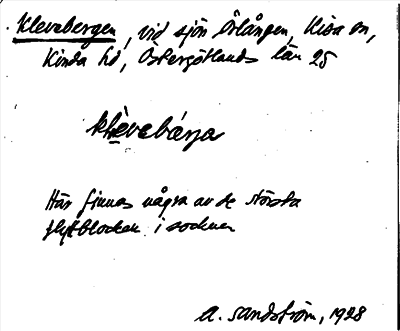 Klevabergen, vid sjön Örlången, Kisa sn,
Kinda hd, Östergötlands län 25
klèvabærja
Här finnas några av de största
flyttblocken i socknen
A. Sandström, 1928